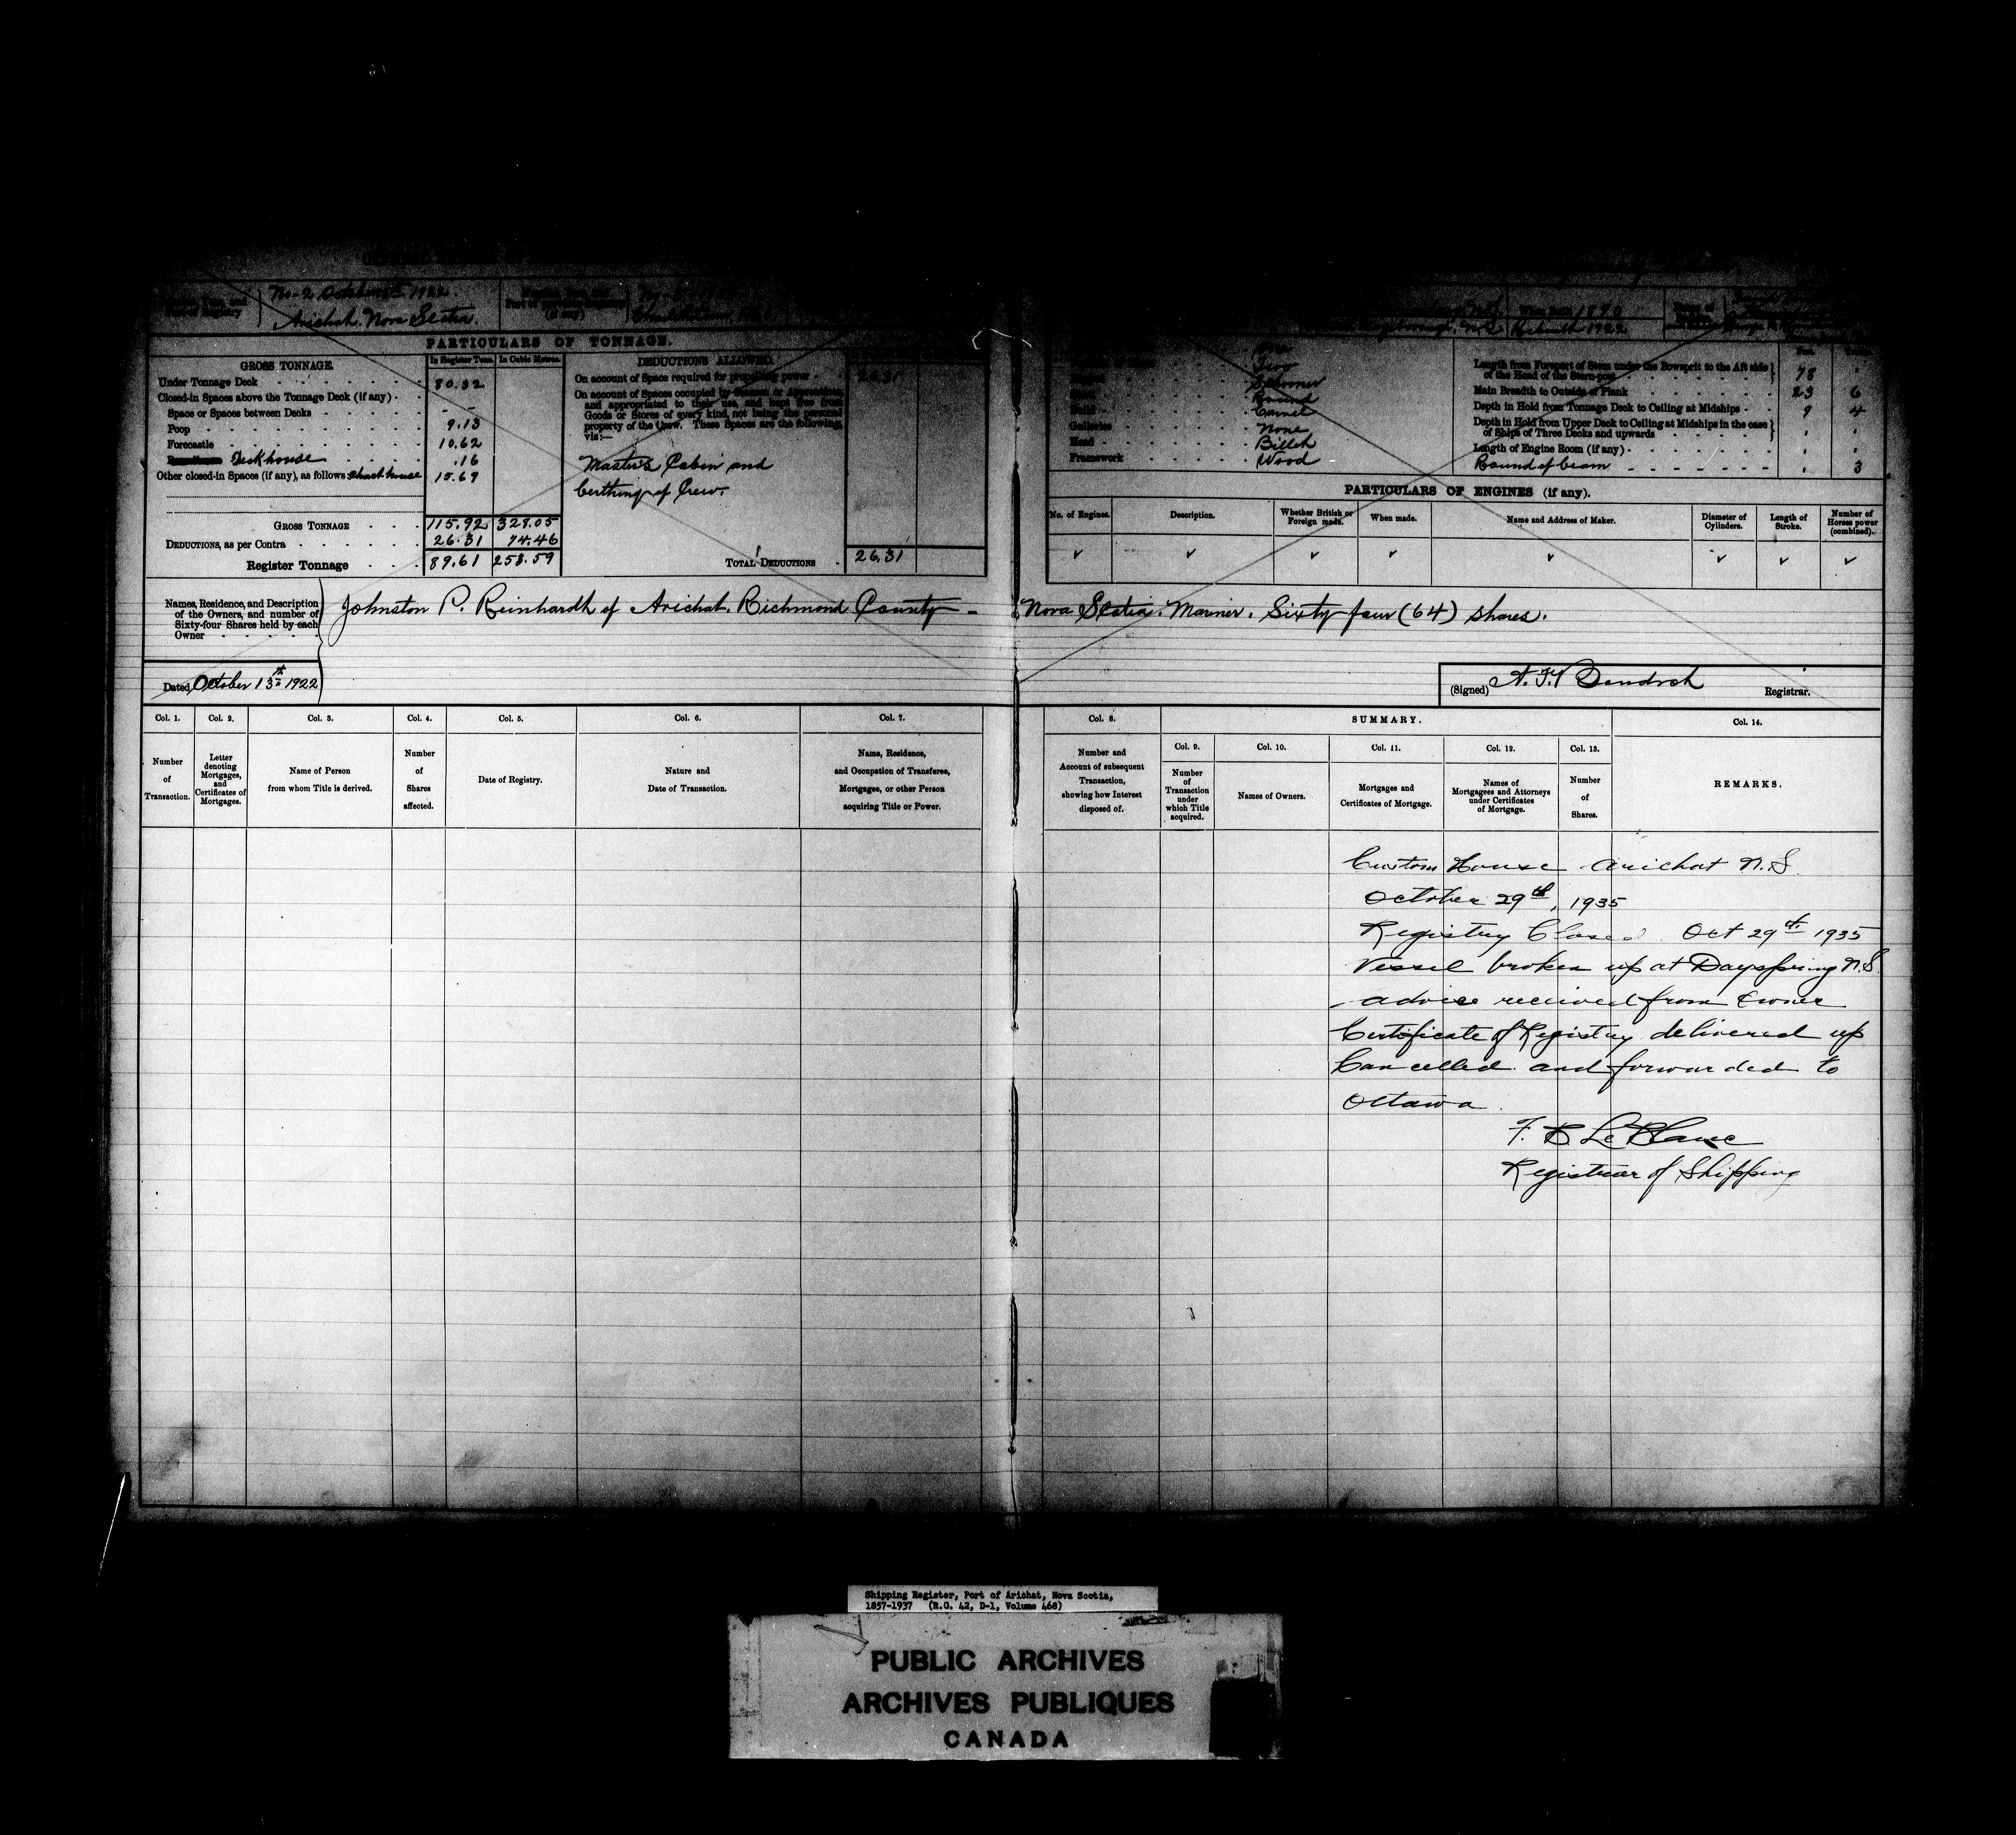 No. 2 1922
Arichat. Nova Scotia.
When built 1890
Rebuilt 1922
PARTICULARS OF TONNAGE.
GROSS TONNAGE.
In Register Tons. In Cubic Metres.
Under Tonnage Deck 80.32
Closed-in Spaces above the Tonnage Deck (if any)
Space or Spaces between Decks
Poop 9.13
Forecastle 10.62
Deckhouse .16
Other closed-in Spaces (if any), as follows 15.69
GROSS TONNAGE 115.92 328.05
DEDUCTIONS, as per Contra 26.31 74.46
Register Tonnage 89.61 253.59
DEDUCTIONS ALLOWED.
On account of Space required for propelling power 26.31
On account of Spaces occupied by Seamen or Apprentices,
and appropriated to their use, and kept free from
Goods or Stores of every kind, not being the personal
property of the Crew. These Spaces are the following,
viz:—
Master's Cabin and
berthing of Crew.
TOTAL DEDUCTIONS 26.31
One
Two
Schooner
Round
Build Carvel
Galleries None
Head Billet
Framework Wood
Length from Forepart of Stem under the Bowsprit to the Aft side
of the Head of the Stern-post 78
Main Breadth to Outside of Plank 23 6
Depth in Hold from Tonnage Deck to Ceiling at Midships 9 4
Depth in Hold from Upper Deck to Ceiling at Midships in the case
of Ships of Three Decks and upwards
Length of Engine Room (if any)
Round of beam 3
PARTICULARS OF ENGINES (if any).
No. of Engines. Description. Whether British or Foreign made. When made. Name and Address of Maker. Diameter of Cylinders. Length of Stroke. Number of Horses power (combined).
Names, Residence, and Description
of the Owners, and number of
Sixty-four Shares held by each
Owner
Johnston P. Reinhardt of Arichat. Richmond County - Nova Scotia. Mariner. Sixty four (64) shares.
Dated October 13th 1922
(Signed) Registrar.
Col. 1. Col. 2. Col. 3. Col. 4. Col. 5. Col. 6. Col. 7. Col. 8. SUMMARY. Col. 14.
Number of Transaction.
Letter denoting Mortgages, and Certificates of Mortgages.
Name of Person from whom Title is derived.
Number of Shares affected.
Date of Registry.
Nature and Date of Transaction.
Name, Residence, and Occupation of Transferee, Mortgages, or other Person acquiring Title or Power.
Number and Account of subsequent Transaction, showing how Interest disposed of.
Col. 9. Number of Transaction under which Title acquired.
Col. 10. Names of Owners.
Col. 11. Mortgages and Certificates of Mortgage.
Col. 12. Names of Mortgagees and Attorneys under Certificates of Mortgage.
Col. 13. Number of Shares.
REMARKS.
Custom House Arichat N.S.
October 29th, 1935
Registry Closed Oct 29th 1935
Vessel broken up at Dayspring N.S.
advice received from Owner
Certificate of Registry delivered up
Cancelled and forwarded to
Ottawa
F. B. LeBlanc
Registrar of Shipping
Shipping Register, Port of Arichat, Nova Scotia,
1857-1937 (R.G. 42, D-1, Volume 468)
PUBLIC ARCHIVES
ARCHIVES PUBLIQUES
CANADA